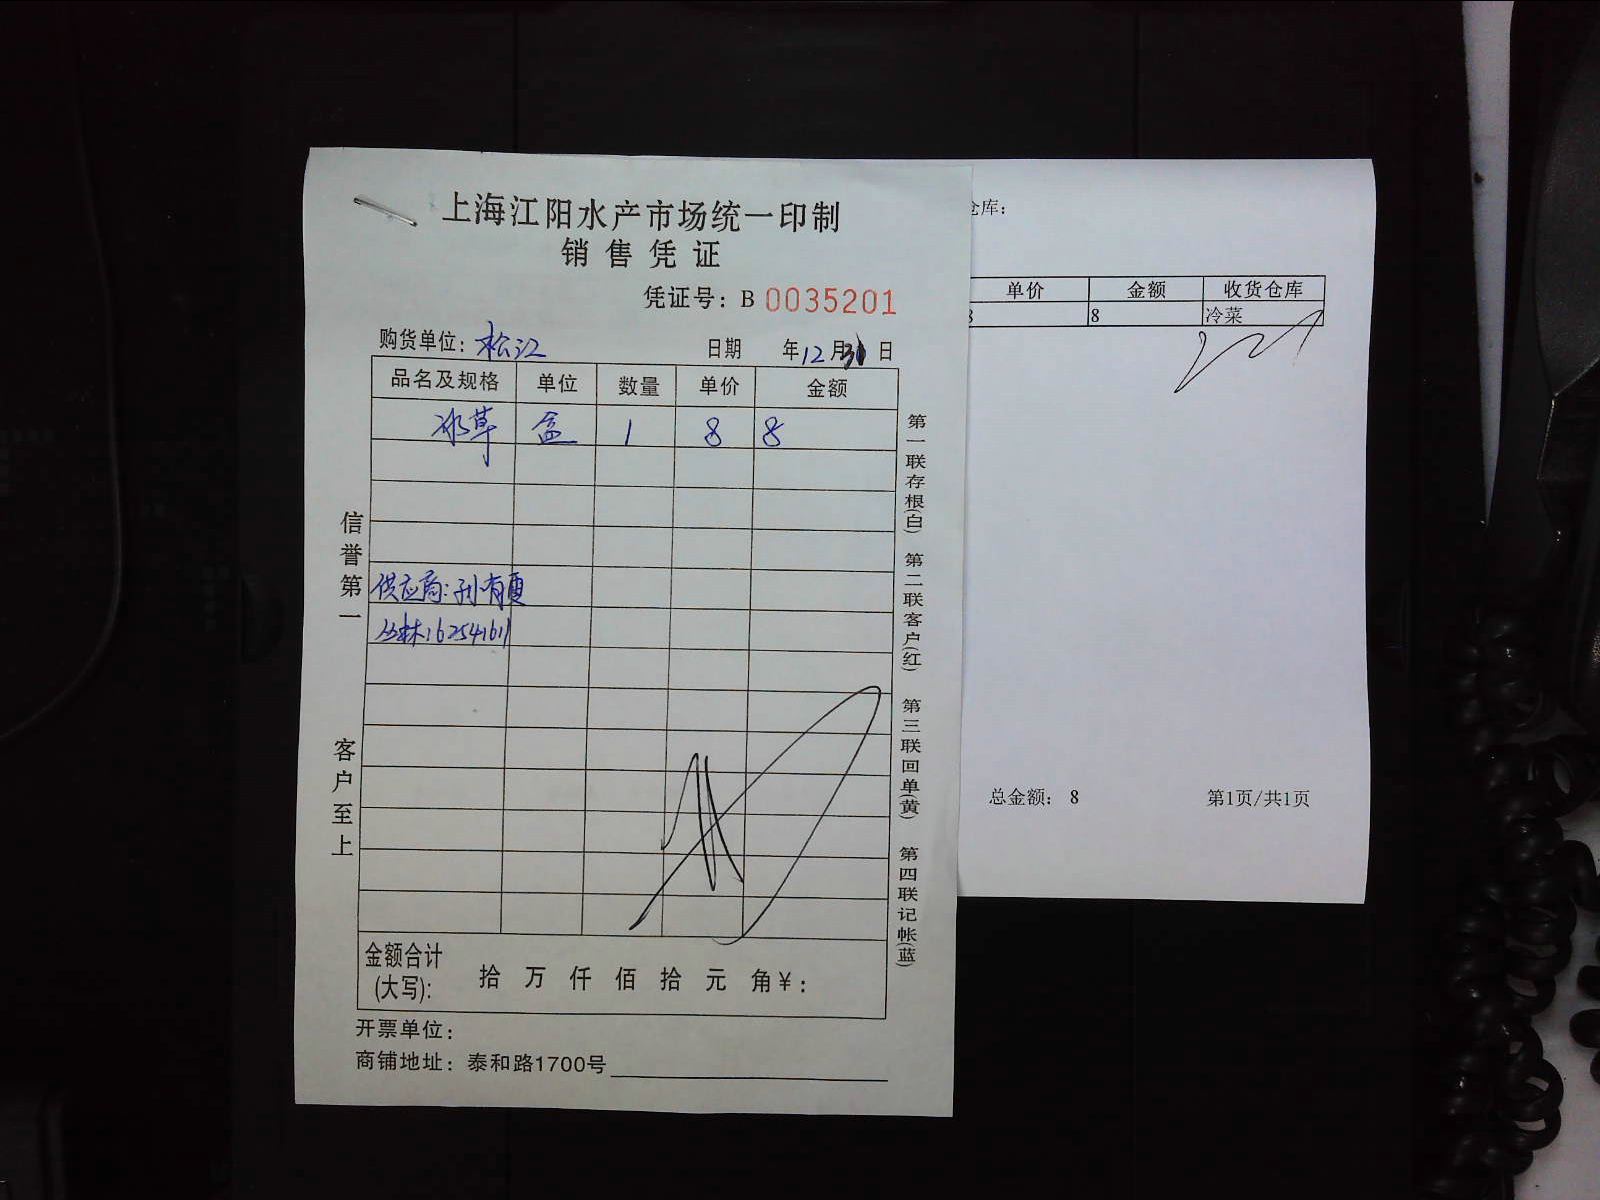 上海江阳水产市场统一印制
销售凭证
凭证号：B 0035201
购货单位：松江 日期 年12月 日
品名及规格 单位 数量 单价 金额
冰草 盒 1 8 8
供应商：孙有
信誉第一
客户至上
第一联存根(白) 第二联客户(红) 第三联回单(黄) 第四联记帐(蓝)
金额合计(大写)： 拾 万 仟 佰 拾 元 角¥：
开票单位：
商铺地址：泰和路1700号
仓库：
单价 金额 收货仓库
8 8 冷菜
总金额： 8 第1页/共1页